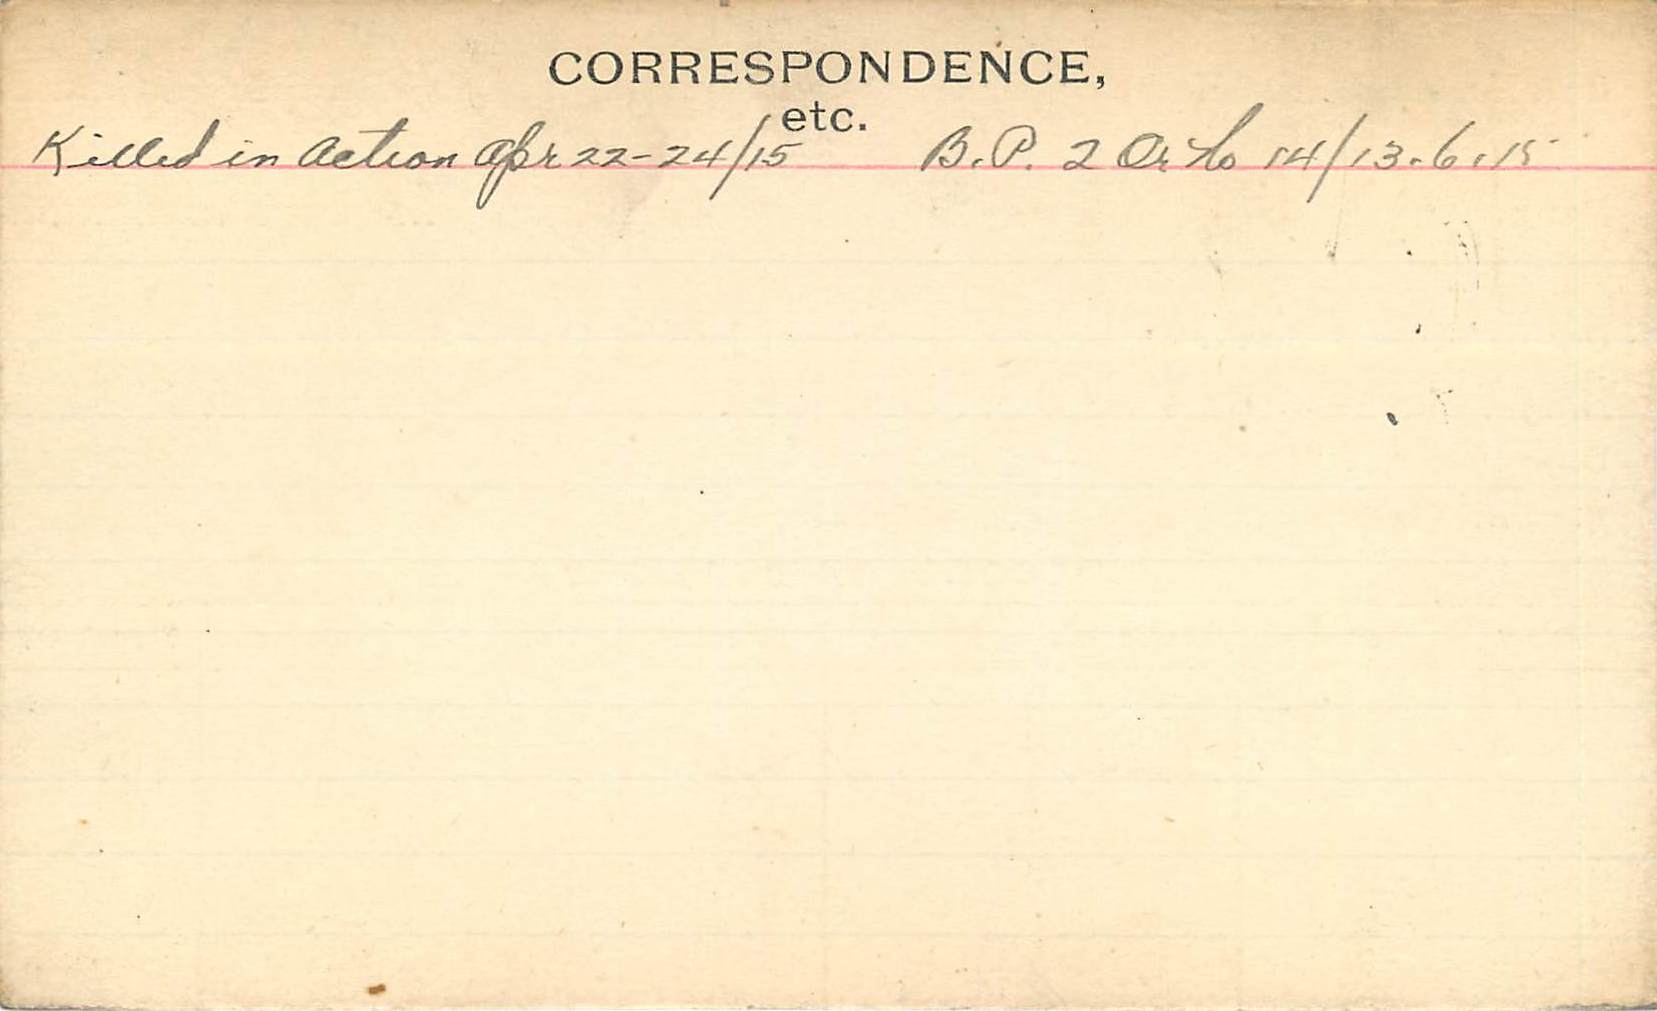 CORRESPONDENCE,
etc.
Killed in Action Apr 22-24/15 B.P. 2 Or No 14/13.6.15